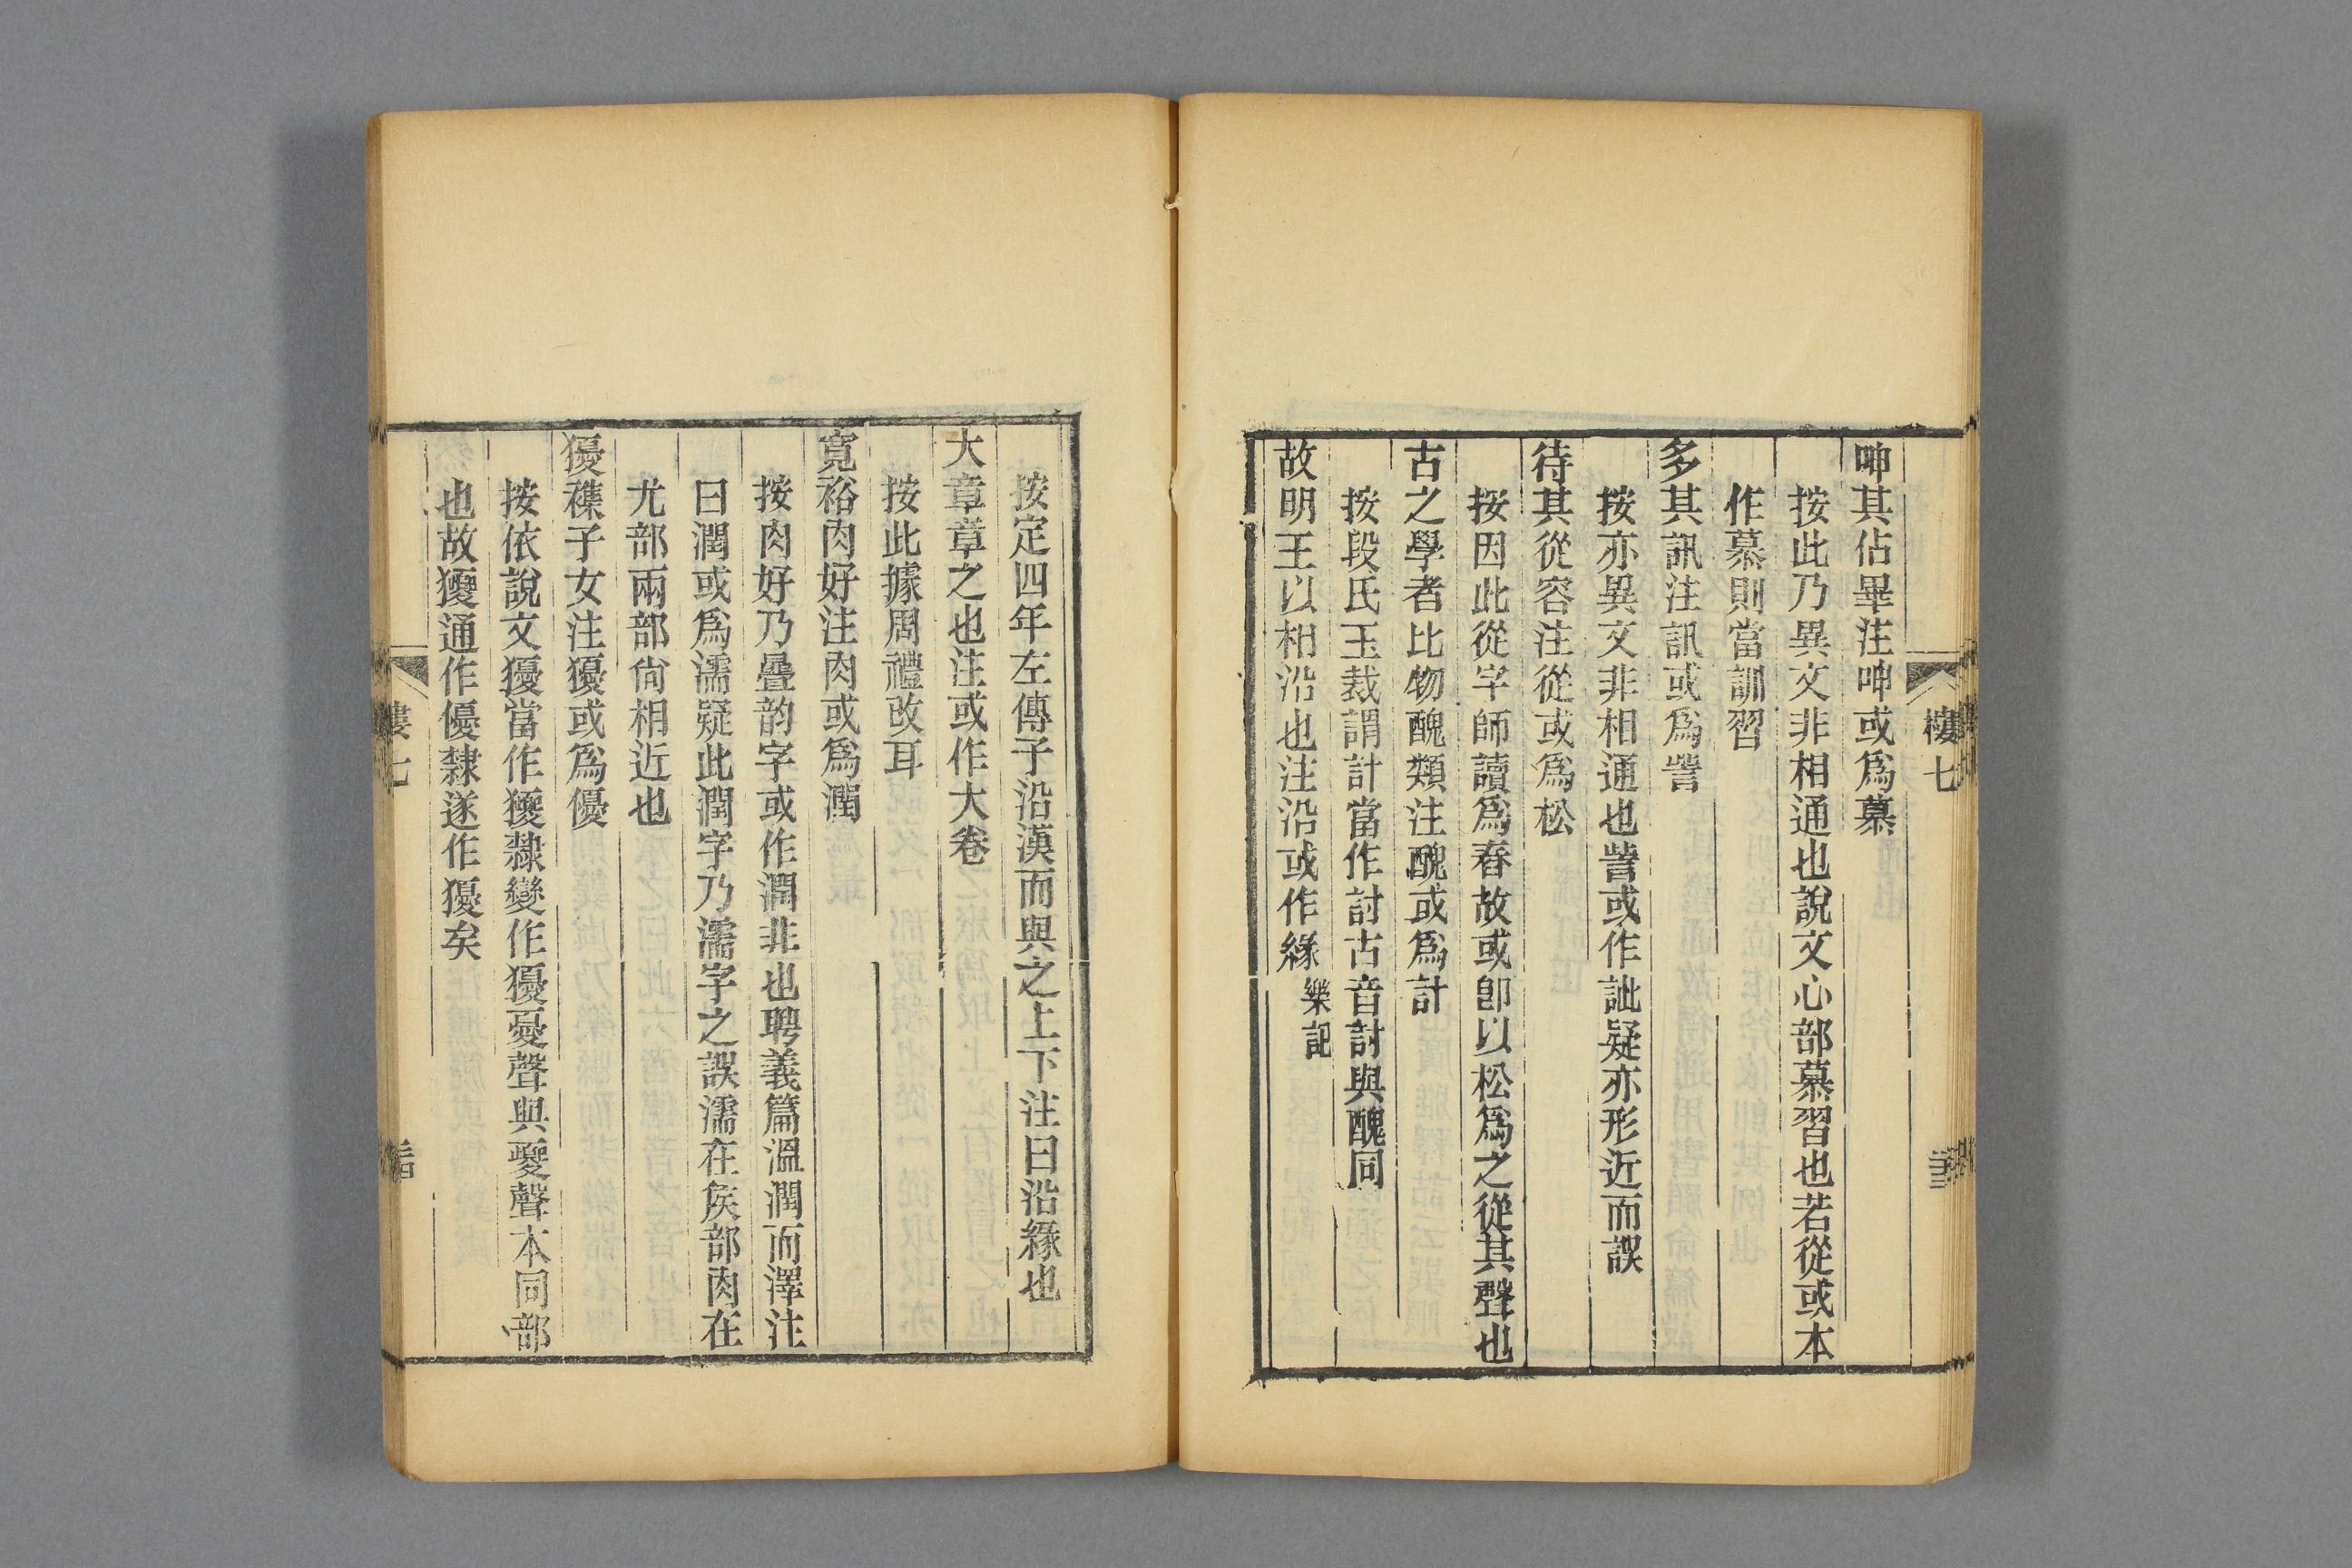 呻其佔畢注呻或爲慕
按此乃異文非相通也說文心部慕習也若從或本
作慕則當訓習
多其訊注訊或爲訾
按亦異文非相通也訾或作訿疑亦形近而誤
待其從容注從或爲松
按因此從字師讀爲舂故或卽以松爲之從其聲也
古之學者比物醜類注醜或爲計
按段氏玉裁謂計當作討古音討與醜同
故明王以相沿也注沿或作緣 樂記
樓七
按定四年左傳子沿漢而與之上下注曰沿緣也
大章章之也注或作大卷
按此據周禮改耳
寬裕肉好注肉或爲潤
按肉好乃疊韵字或作潤非也聘義篇溫潤而澤注
曰潤或爲濡疑此潤字乃濡字之誤濡在矦部肉在
尤部兩部尙相近也
獶襍子女注獶或爲優
按依說文獶當作獿隸變作獶憂聲與夒聲本同部
也故獿通作優隸遂作獶矣
樓七